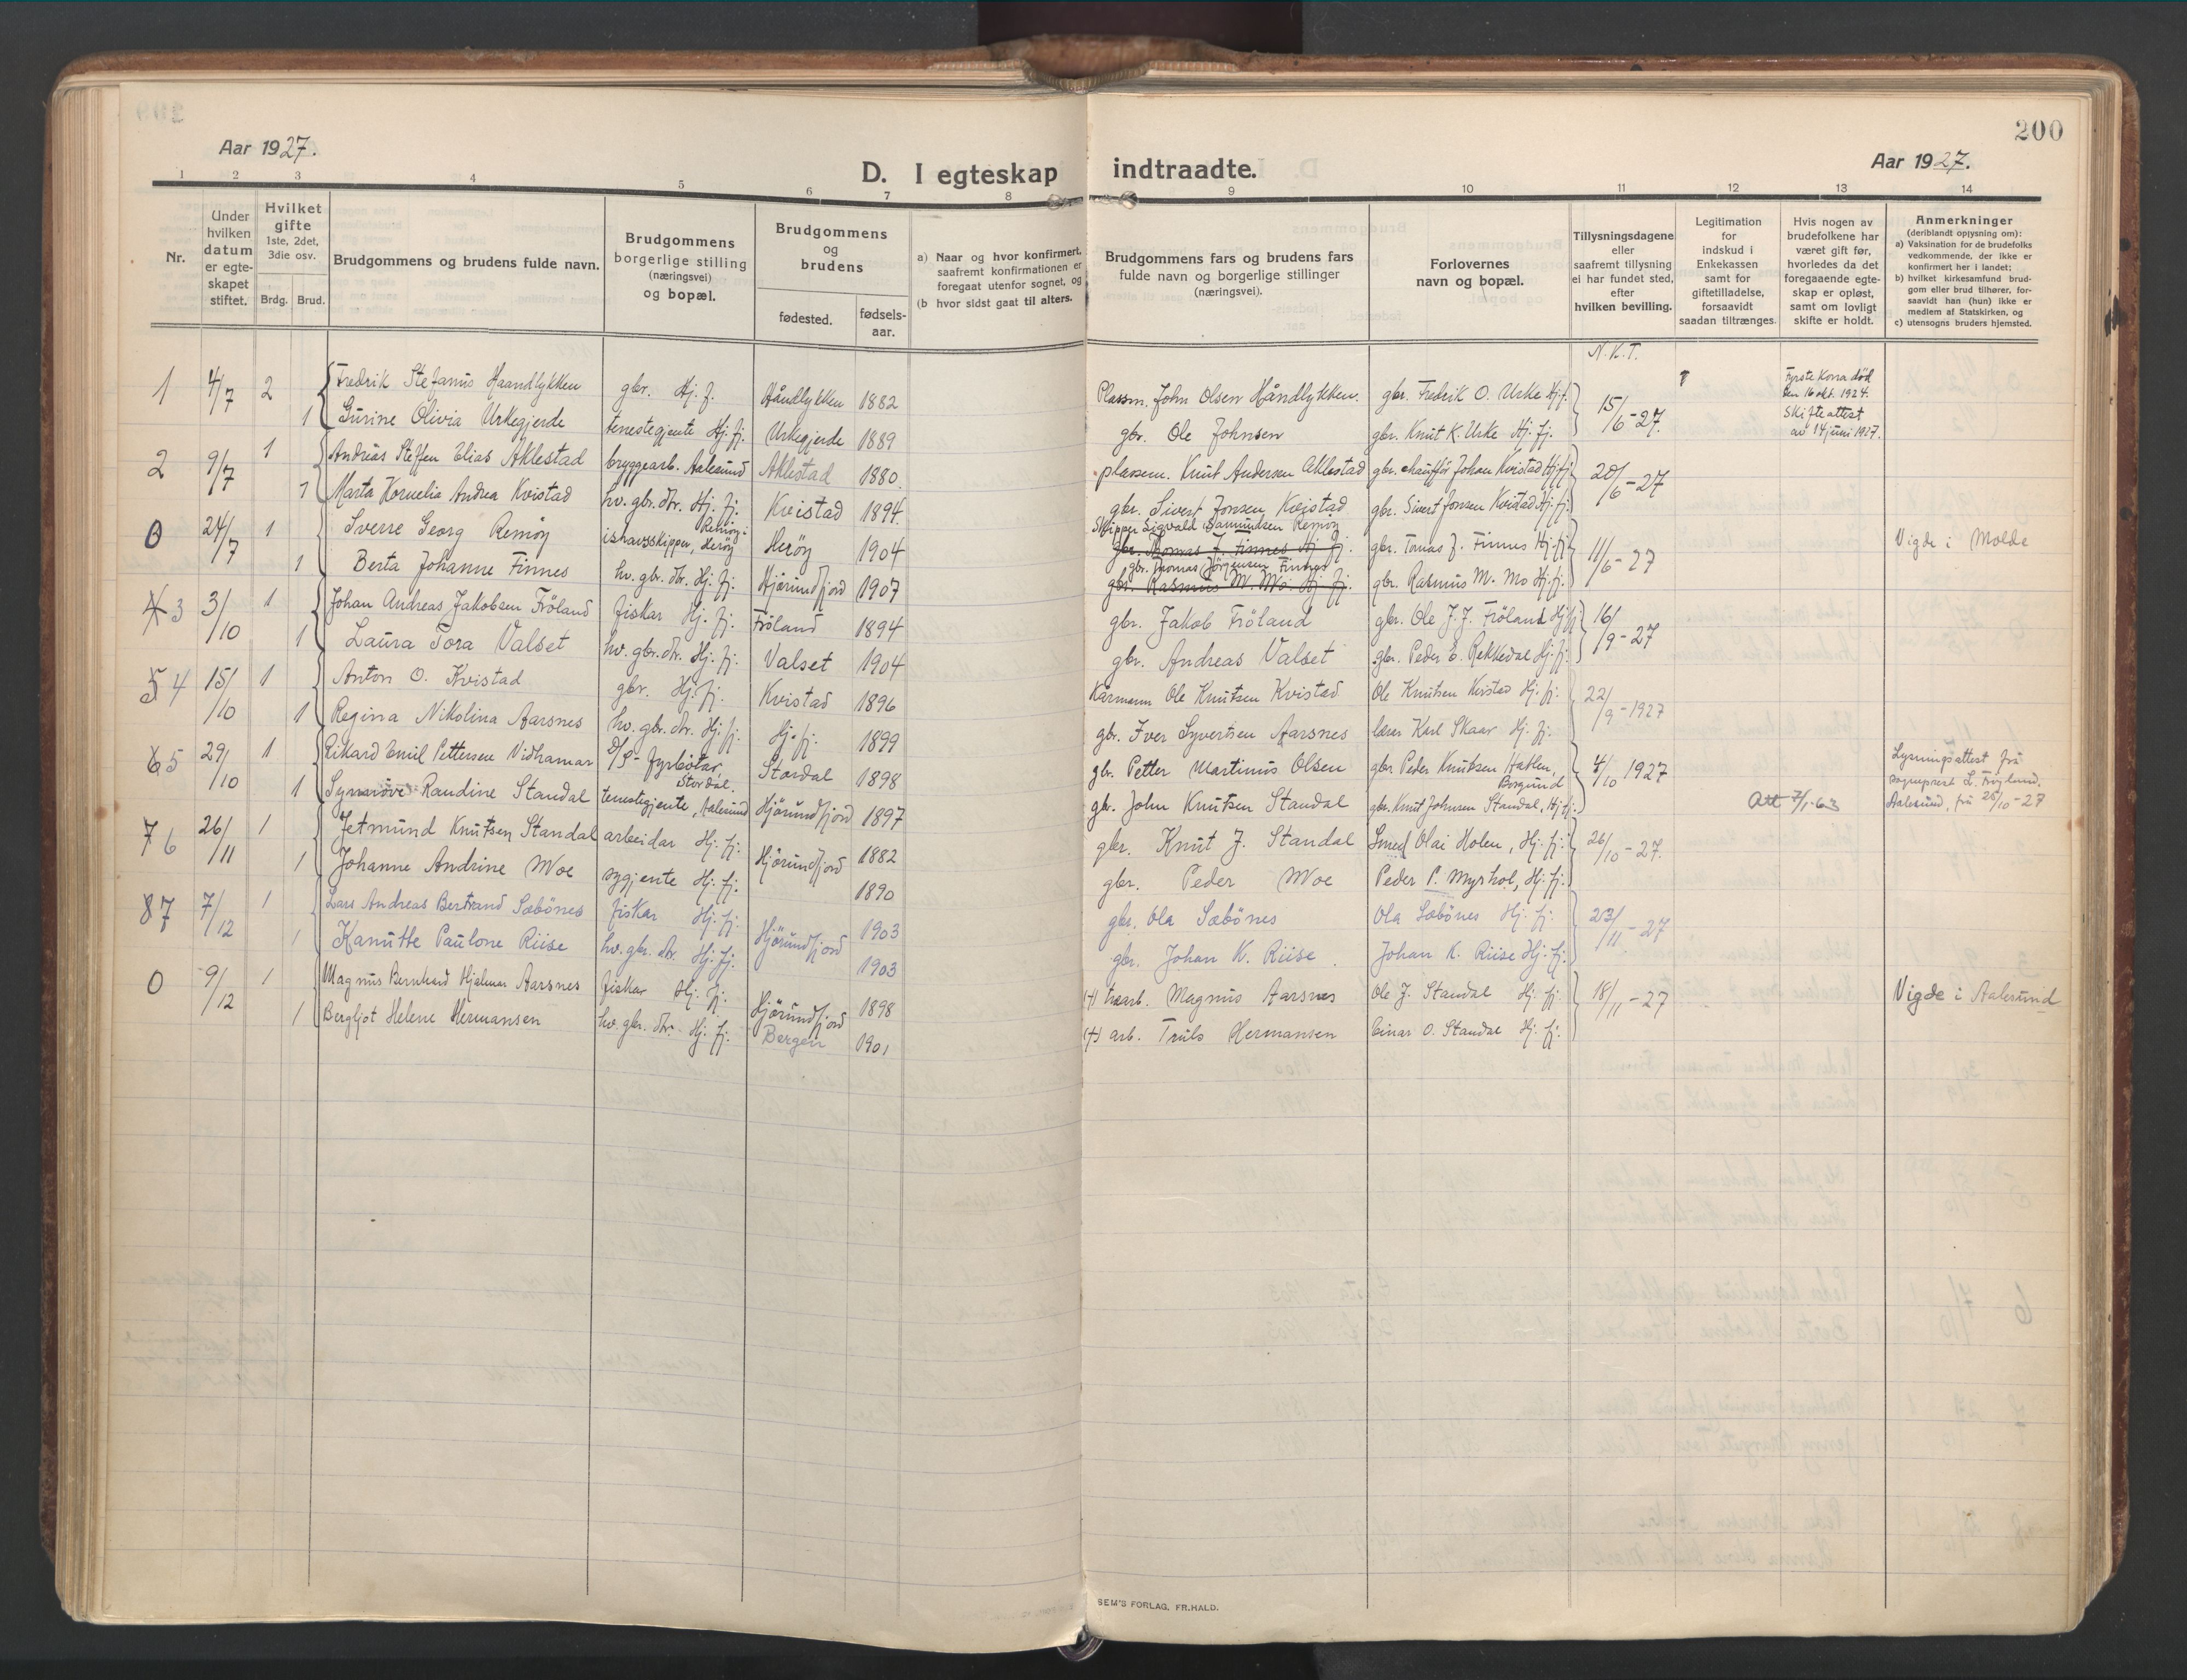 200
Aar 1927.
Aar 1927.
D. I egteskap indtraadte.
1 2 3 4 5 6 7 8 9 10 11 12 13 14
Nr.
Under hvilken datum er egte-skapet stiftet.
Hvilket gifte 1ste, 2det, 3die osv.
Brdg. Brud.
Brudgommens og brudens fulde navn.
Brudgommens borgerlige stilling (næringsvei) og bopæl.
Brudgommens og brudens
fødested.
fødsels-aar.
a) Naar og hvor konfirmert, saafremt konfirmationen er foregaat utenfor sognet, og
(b hvor sidst gaat til alters.
Brudgommens fars og brudens fars fulde navn og borgerlige stillinger (næringsvei).
Forlovernes navn og bopæl.
Tillysningsdagene eller saafremt tillysning ei har fundet sted, efter hvilken bevilling.
Legitimation for indskud i Enkekassen samt for giftetilladelse, forsaavidt saadan tiltrænges.
Hvis nogen av brudefolkene har været gift før, hvorledes da det foregaaende egte-skap er opløst, samt om lovligt skifte er holdt.
Anmerkninger (deriblandt opjysning om):
a) Vaksination for de brudefolks vedkommende, der ikke er konfirmert her i landet;
b) hvilket kirkesamfund brud-gom eller brud tilhører, for-saavidt han (hun) ikke er medlem af Statskirken, og
c) utensogns bruders hjemsted.
N.K.T.
1 4/7 2 Fredrik Stefanus Haandlykken gbr. Hj. f. Håndlykken 1882 Plassm. John Olsen Håndlykken. gbr. Fredrik O. Urke Hj.f. 15/6-27. Fyrste kona død den 16 okt. 1924. Skifteattest av 14 juni 1927.
1 Gurine Olivia Urkegjerde tenestegjente Hj. fj. Urkegjerde 1889 gbr. Ole Johnsen gbr. Knut K. Urke Hj. fj.
2 9/7 1 Andreas Steffen Elias Aklestad bryggearb. Aalesund Aklestad 1880. plassm. Knut Andersen Aklestad gbr. chauffør Johan Kvistad Hj.fj. 20/6-27
1 Marta Kornelia Andrea Kvistad hv. gbr. dtr. Hj. fj. Kvistad 1894. gbr. Sivert Jonsen Kvistad gbr. Sivert Jonsen Kvistad Hj.fj.
0 24/7 1 Sverre Georg Remøy ishavsskipper, Remøy Herøy Herøy 1904 Skipper Sigvald Samundsen Remøy gbr. Thomas J. Finnes Hj. fj. gbr. Tomas J. Finnes Hj.fj. 11/6-27 Vigde i Molde
1 Berta Johanne Finnes hv. gbr. dtr. Hj. fj. Hjørundfjord 1907 gbr. Thomas Jørgensen Finnes gbr. Rasmus M. Mo Hj. fj. gbr. Rasmus M. Mo Hj.fj.
4 3 3/10 1 Johan Andreas Jakobsen Frøland fiskar Hj. fj. Frøland 1894 gbr. Jakob Frøland gbr. Ole J. J. Frøland Hj.fj. 16/9-27
1 Laura Tora Valset hv. gbr. dtr. Hj. fj. Valset 1904 gbr. Andreas Valset gbr. Peder E. Rekkedal Hj.fj.
5 4 15/10 1 Anton O. Kvistad gbr. Hj. fj. Kvistad 1896 Kårmann Ole Knutsen Kvistad Ole Knutsen Kvistad Hj. fj. 22/9-1927
1 Regina Nikolina Aarsnes hv. gbr. dtr. Hj. fj. Hj. fj. 1899 gbr. Iver Syvertsen Aarsnes lærer Karl Skaar Hj. fj.
6 5 29/10 1 Rikard Emil Pettersen Vidhamar D/S-fyrbøtar, Stordal. Stordal 1898 gbr. Petter Martinus Olsen gbr. Peder Knutsen Hatlen, Borgund 4/10 1927 Lysningsattest frå sogneprest L. Frøyland. Aalesund, frå 25/10-27
1 Synnøve Raudine Standal tenestegjente, Aalesund Hjørundfjord 1897 gbr. John Knutsen Standal gbr. Knut Johnsen Standal, Hj.fj. Att 7/1-63
7 6 26/11 1 Jetmund Knutsen Standal arbeidar Hj. fj. Hjørundfjord 1882 gbr. Knut J. Standal Smed Olai Holen, Hj. fj. 26/10-27.
1 Johanne Andrine Moe sygjente Hj. fj. 1890 gbr. Peder Moe Peder P. Myrhol, Hj. fj.
8 7 7/12 1 Lars Andreas Bertrand Sæbønes fiskar Hj. fj. Hjørundfjord 1903 gbr. Ola Sæbønes Ola Sæbønes Hj. fj. 23/11-27
1 Kanutte Paulone Riise hv. gbr. dtr. Hj. fj. 1903 gbr. Johan K. Riise. Johan K. Riise Hj. fj.
0 9/12 1 Magnus Bernhard Hjalmar Aarsnes fiskar Hj. fj. Hjørundfjord 1898 (+) træarb. Magnus Aarsnes Ole J. Standal Hj. fj. 18/11-27 Vigde i Aalesund
1 Bergljot Helene Hermansen hv. gbr. dtr. Hj. fj. Bergen 1901 (+) arb. Truls Hermansen Einar O. Standal Hj. fj.
SEM'S FORLAG, FR.HALD.